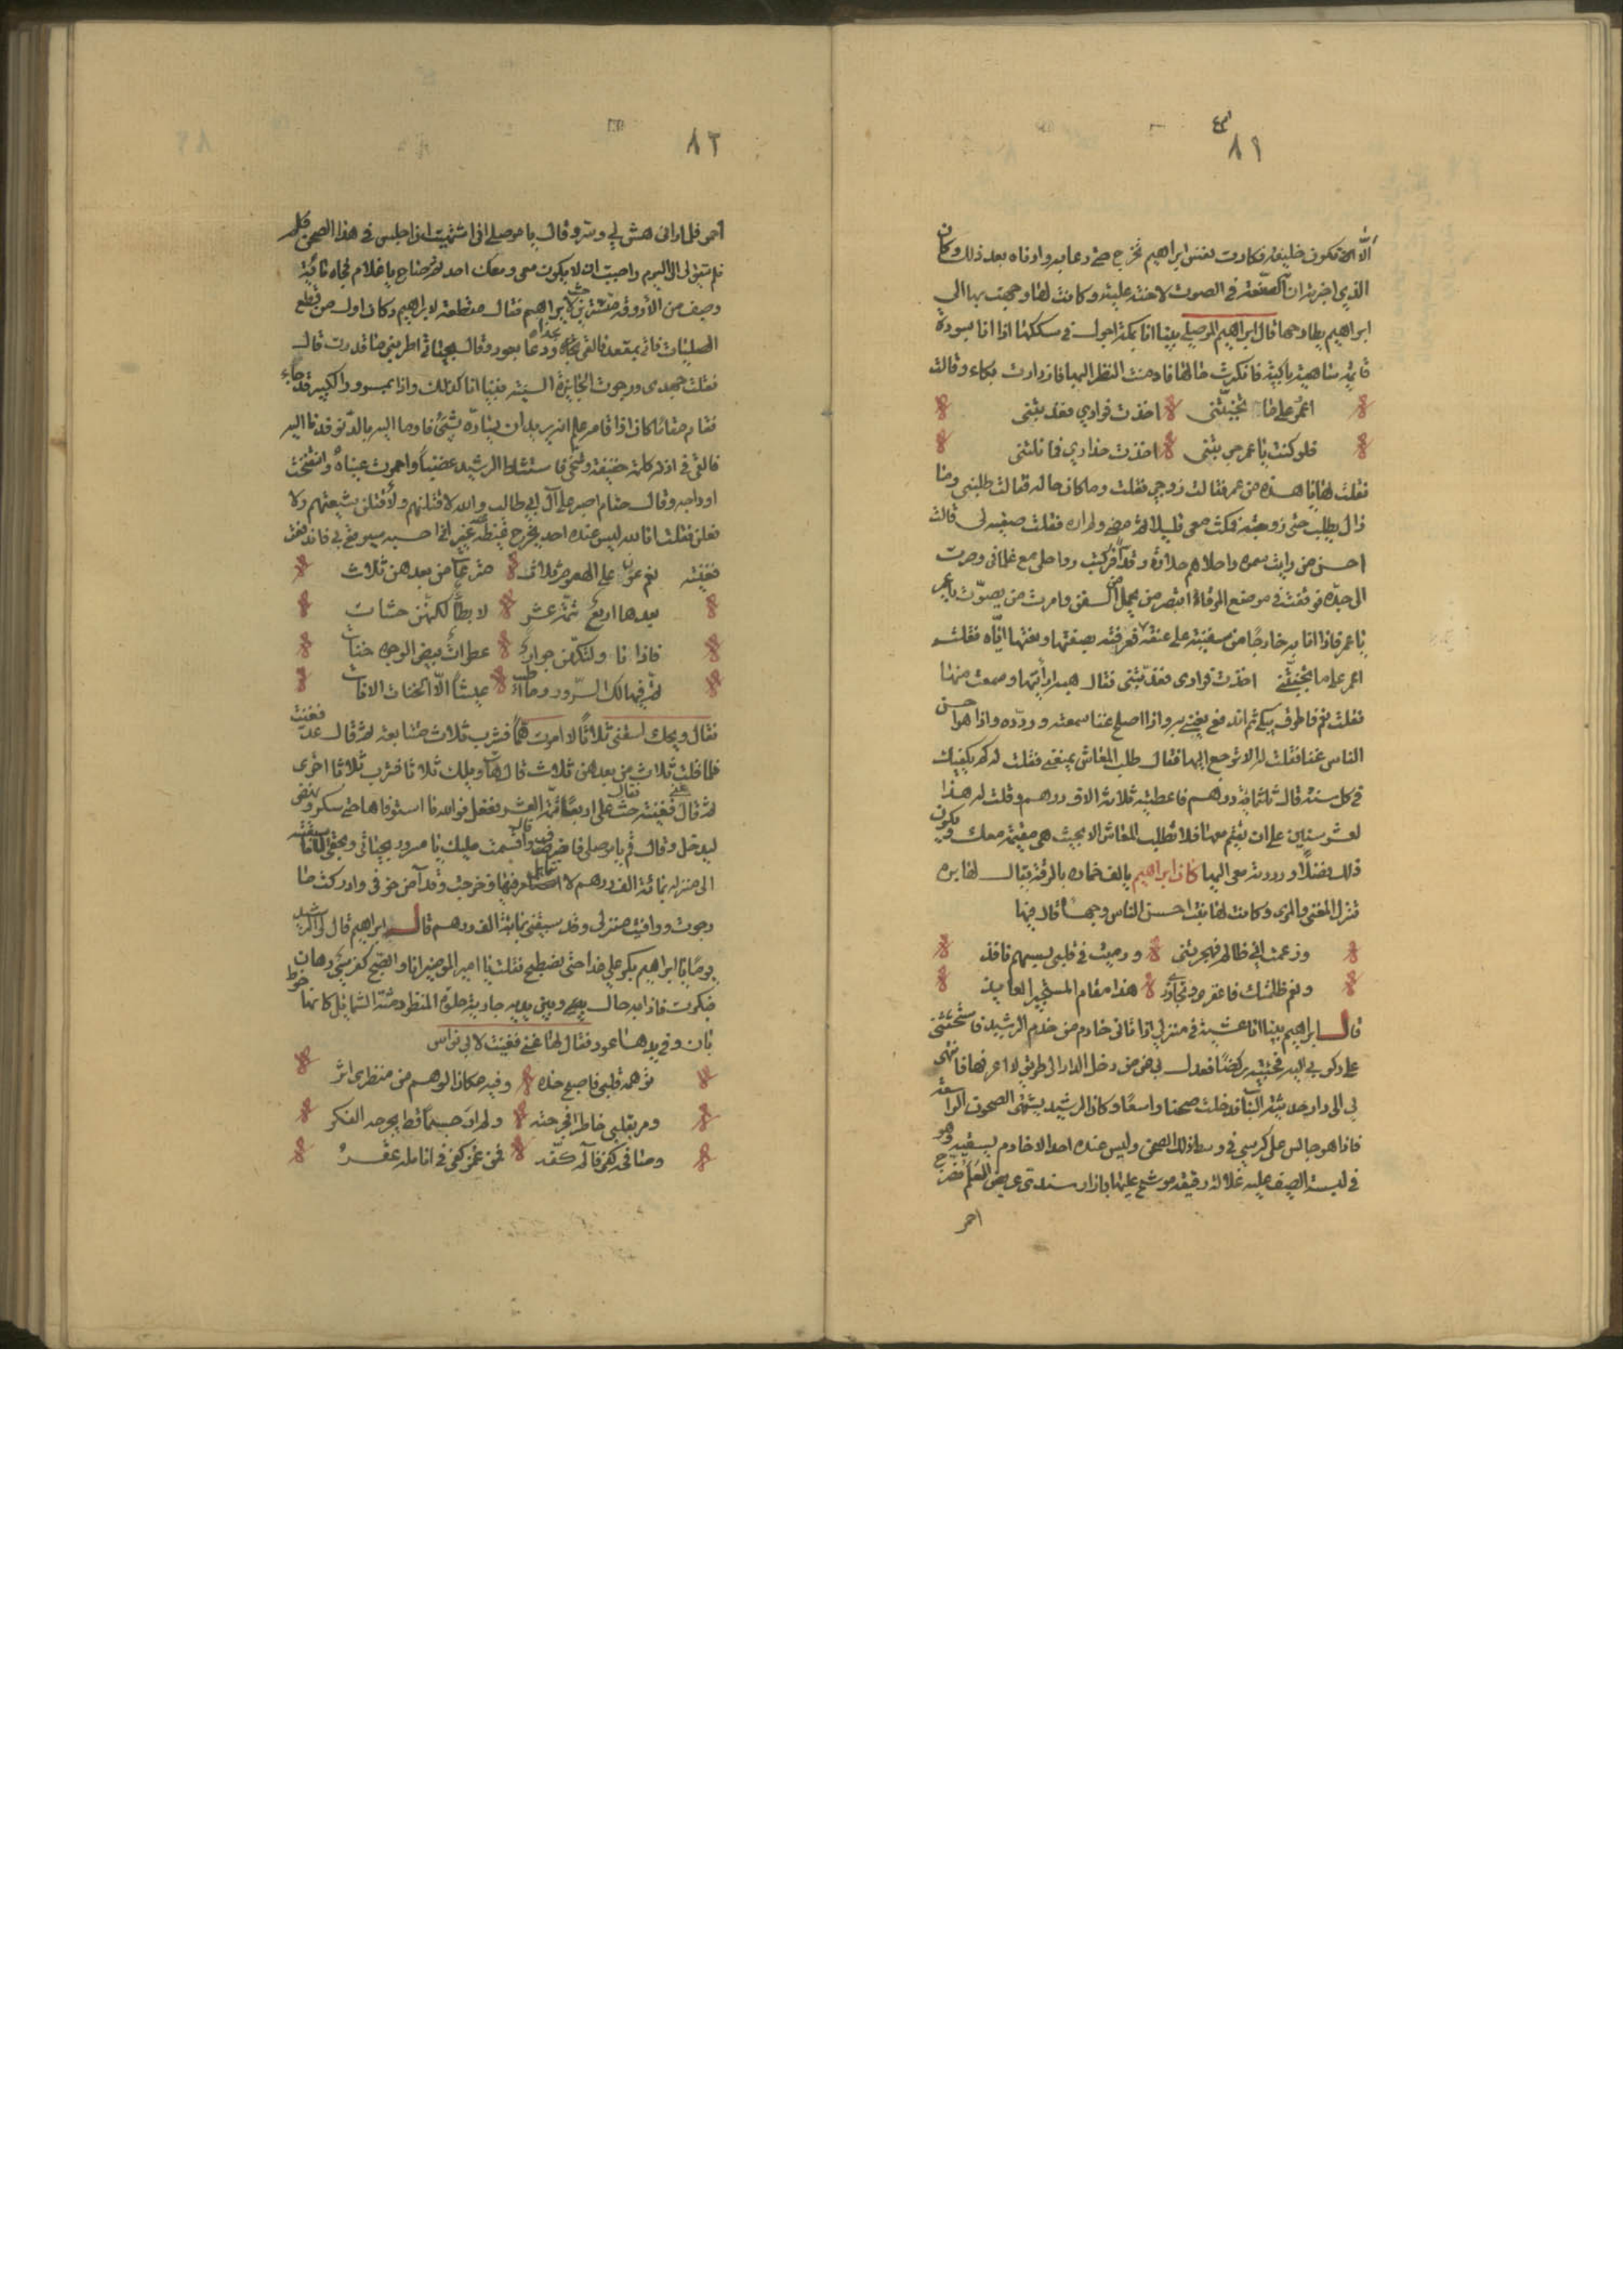 ٨١
الا ان تكون خليفة فكادت نفس ابراهيم تخرج حتى دعا به وادناه بعد ذلك وكان
الذي اخبر ان الصنعة في الصوت لاخته علية وكانت لها وجهت بها الى
ابراهيم يطارحها قال ابراهيم الموصلي بينا انا بمكة اجول في سككها اذا انا بسوداء
قائمة ساهية باكية فانكرت حالها فادمنت النظر اليها فازدادت بكاء وقالت
اعمرو علام تجنبتني اخذت فوادي فعذبتني
فلو كنت يا عمرو خبرتني اخذت حذاري فما نلتني
فقلت لها يا هذه من عمرو فقالت زوجي فقلت وما كان حاله فقالت طلبني وما
زال يطلب حتى زوجته فمكث معي قليلا ثم مضى ولم اره فقلت صفيه لي قالت
احسن من رايت سمرة واحلاهم حلاوة وقدا فركبت رواحلي مع غلماني وصرت
الى جدة فوقفت في موضع المرفاء ابتصر من يحمل من السفن وامرت من يصوت يا عمرو
يا عمرو فاذا انا به خارجا من سفينته على عنقه فعرفته بصفتها ونعتها اياه فقلت
اعمرو علام تجنبتني اخذت فوادي فعذبتني فقال هيه رأيتها وسمعت منها
فقلت نعم فاطرق يبكي ثم اندفع يغني به واذا اصلح غنا سمعته وردده واذا هو احسن
الناس غنا فقلت له الا ترجع اليها فقال طلب المعاش يمنعني فقلت له كم يكفيك
في كل سنة قال ثلثماية درهم فاعطيته ثلاثة الاف درهم وقلت له هذا
لعشر سنين على ان تقيم معها فلا تطلب المعاش الا بحيث هي مقيمة معك ويكون
ذلك فضلا ورددته معي اليها كان ابراهيم يالف خمارة بالرقة يقال لها بره
تنزل المغني والمري وكانت لها بنت احسن الناس وجها قال فيها
وزعمت اني ظالم فهجرتني ورميت في قلبي بسهم نافذ
ونعم ظلمتك فاغفري وتجاوزي هذا مقام المستجير العايذ
قال ابراهيم بينا انا عشية في منزلي اذ اتاني خادم من خدم الرشيد فاستحثني
على ركوبي اليه فجئته ركضا فعدل بي من مدخل الدار الى طريق لا اعرفها فانتهى
بي الى دار حديثة البناء فدخلت صحنا واسعا وكان الرشيد يشتهي الصحون الواسعة
فاذا هو جالس على كرسي في وسط ذلك الصحن وليس عنده احد الا خادم يسقيه وهو
في لبسة الصيف عليه غلالة رقيقة موشح عليها بازار رشيدي عريض العلم مضرج
احمر
٨٢
احمر فلما راني هش لي وسر وقال يا موصلي اني اشتهيت ان اجلس في هذا الصحن فلم
يتفق لي الا اليوم واحببت ان لا يكون معي ومعك احد ثم صاح يا غلام فجاه ماية
وصيف من الاروقة مستترين لابراهيم فقال مقطعة لابراهيم وكان اول من قطع
المصليات فاتي بمقعد فالقي تجاه وجهه ودعا بعود وقال بحياتي اطربني بما قدرت قال
فقلت جهدي ورجوت الجايزة السنية فبينا انا كذلك واذا بمسرور الكبير قد جاء
فقام مقاما كان اذا قامه علم انه يريد ان يساره بشيء فاوما اليه بالدنو فدنا اليه
فالقى في اذنه كلمة خفيفة وتنحى فاستشاط الرشيد غضبا واحمرت عيناه وانتفخت
اوداجه وقال حتام اصبر على آل ابي طالب والله لاقتلنهم ولأقتلن شيعتهم ولا
فعلن فقلت انا لله ليس عنده احد يخرج غيظه عليه غيري احسبه سيوقع بي فاندفعت
فغنيته نعم عونا على الهموم ثلاث مترعات من بعدهن ثلاث
بعدها اربع تتمة عشر لا بطاء لكنهن حثاث
فاذا نا ولتكهن جوار عطرات بيض الوجوه خناث
تم فيها لك السرور وما طيب عيشا الا الخناث الاناث
فقال ويحك اسقني ثلاثا لا امت هما فشرب ثلاثا متتابعة ثم قال عد فغنيت
فلما قلت ثلاث من بعدهن ثلاث قال هات ويلك ثلاثا فشرب ثلاثا اخرى
ثم قال غن فغنيته فقال حث علي اربعا تتمة العشر ففعل فوالله ما استوفاها حتى سكر ونهض
ليدخل وقال قم يا موصلي فانصرف وقال اقسمت عليك يا مسرور بحياتي وبحقي الا سبقته
الى منزله بمائة الف درهم لا استامر فيها فخرجت وقد آمن خوفي وادركت ما
رجوت ووافيت منزلي وقد سبقني بمائة الف درهم قال ابراهيم قال لي الرشيد
يوما يا ابراهيم بكر علي غدا حتى نصطبح فقلت يا امير المومنين انا والصبح كفرسي رهان
فبكرت فاذا به خال وبين يديه جارية حلوة المنظر دمثة الشمايل كانها خوط
بان وفي يدها عود فقال لها غني فغنيت لابي نواس
توهمه قلبي فاصبح خده وفيه مكان الوهم من منظري اثر
ومر بقلبي خاطرا فجرحته ولم ار جسما قط يجرحه الفكر
وصافحه كفي فآلم كفه فمن غمز كفي في انامله عقر